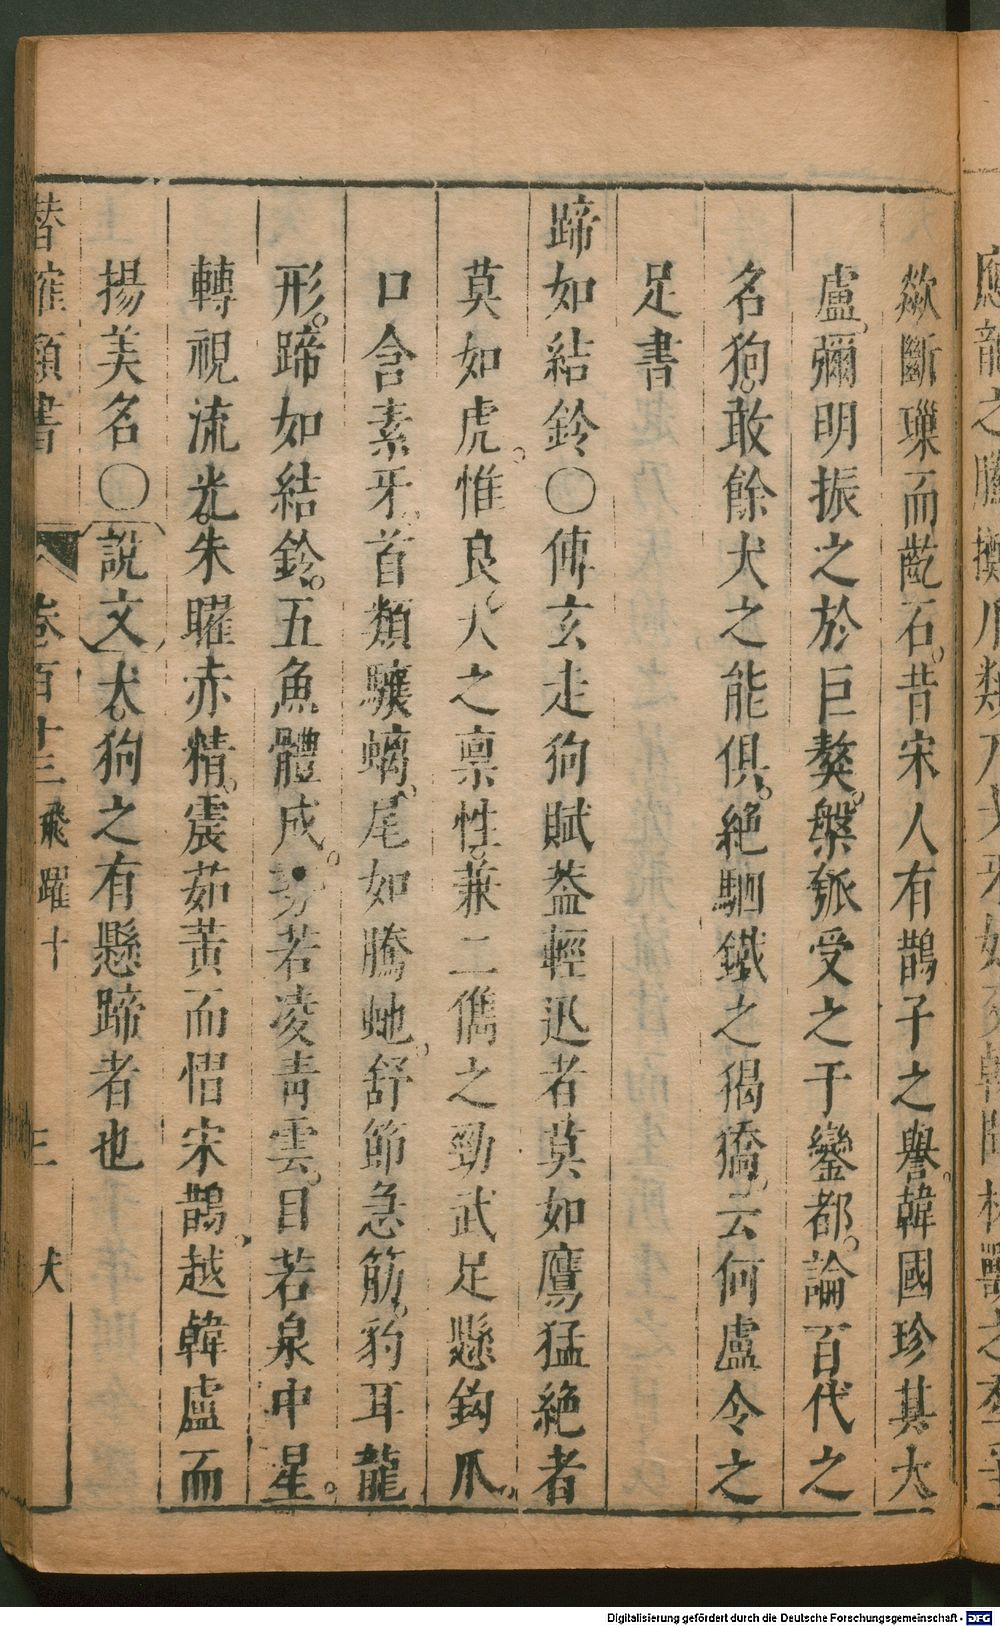 歘斷璅而齕石昔宋人有鵲子之譽韓國珍其大
盧彌明振之於巨獒槃瓠受之于鑾都論百代之
名狗敢餘犬之能俱絕駟鐵之猲獢云何盧令之
足書
蹄如結鈴○傅玄走狗賦葢輕迅者莫如鷹猛絶者
莫如虎惟良犬之禀性兼二儁之勁武足懸鉤爪
口含素牙首類驤螭尾如騰虵舒節急筋豹耳龍
形蹄如結鈴五魚體成勢若凌青雲目若泉中星
轉視流光朱曜赤精震茹黃而慴宋鵲越韓盧而
揚美名○說文犬狗之有懸蹄者也
潛確類書 卷百十三 飛躍十 三 犬
Digitalisierung gefördert durch die Deutsche Forschungsgemeinschaft - DFG